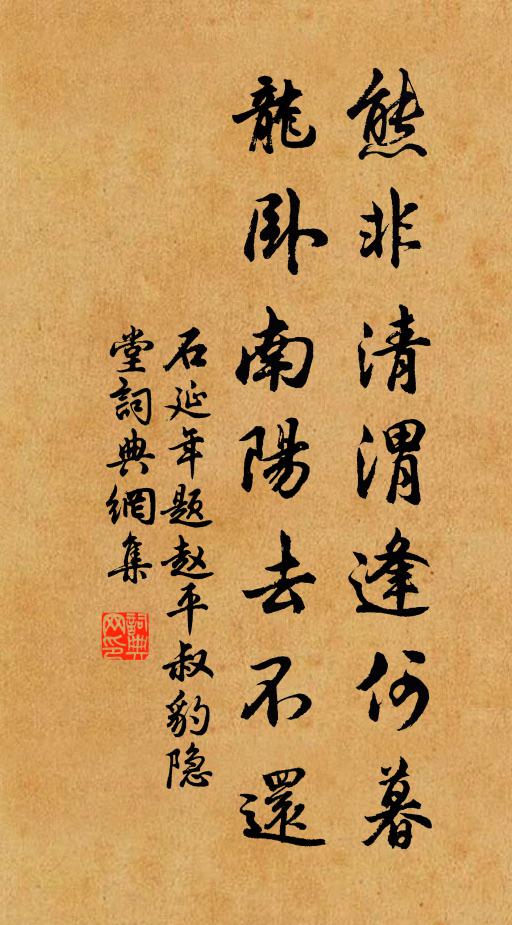 熊非清渭逢何暮
龍卧南陽去不還
石延年题赵平叔豹隐
堂詞典網集
詞典
网印